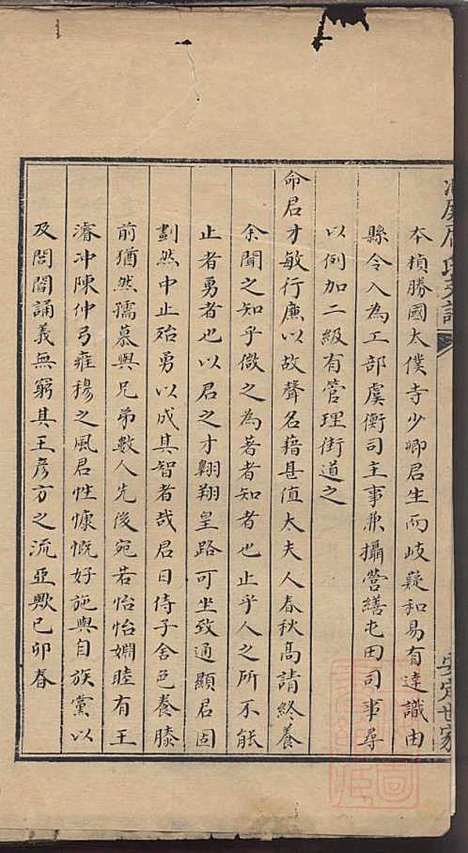 本植勝國太僕寺少卿君生而歧嶷和易有達識由
縣令入為工部虞衡司主事兼攝營繕屯田司事尋
以例加二級有管理街道之
命君才敏行廉以故聲名藉甚值太夫人春秋高請終養
余聞之知乎微之為著者知者也止乎人之所不能
止者勇者也以君之才翺翔皇路可坐致通顯君固
劃然中止殆勇以成其智者哉君日侍子舍色養膝
前猶然孺慕與兄弟數人先後宛若怡怡婣睦有王
濬冲陳仲弓雍穆之風君性慷慨好施與自族黨以
及閭閻誦義無窮其王彥方之流亞歟己卯春
安定世家